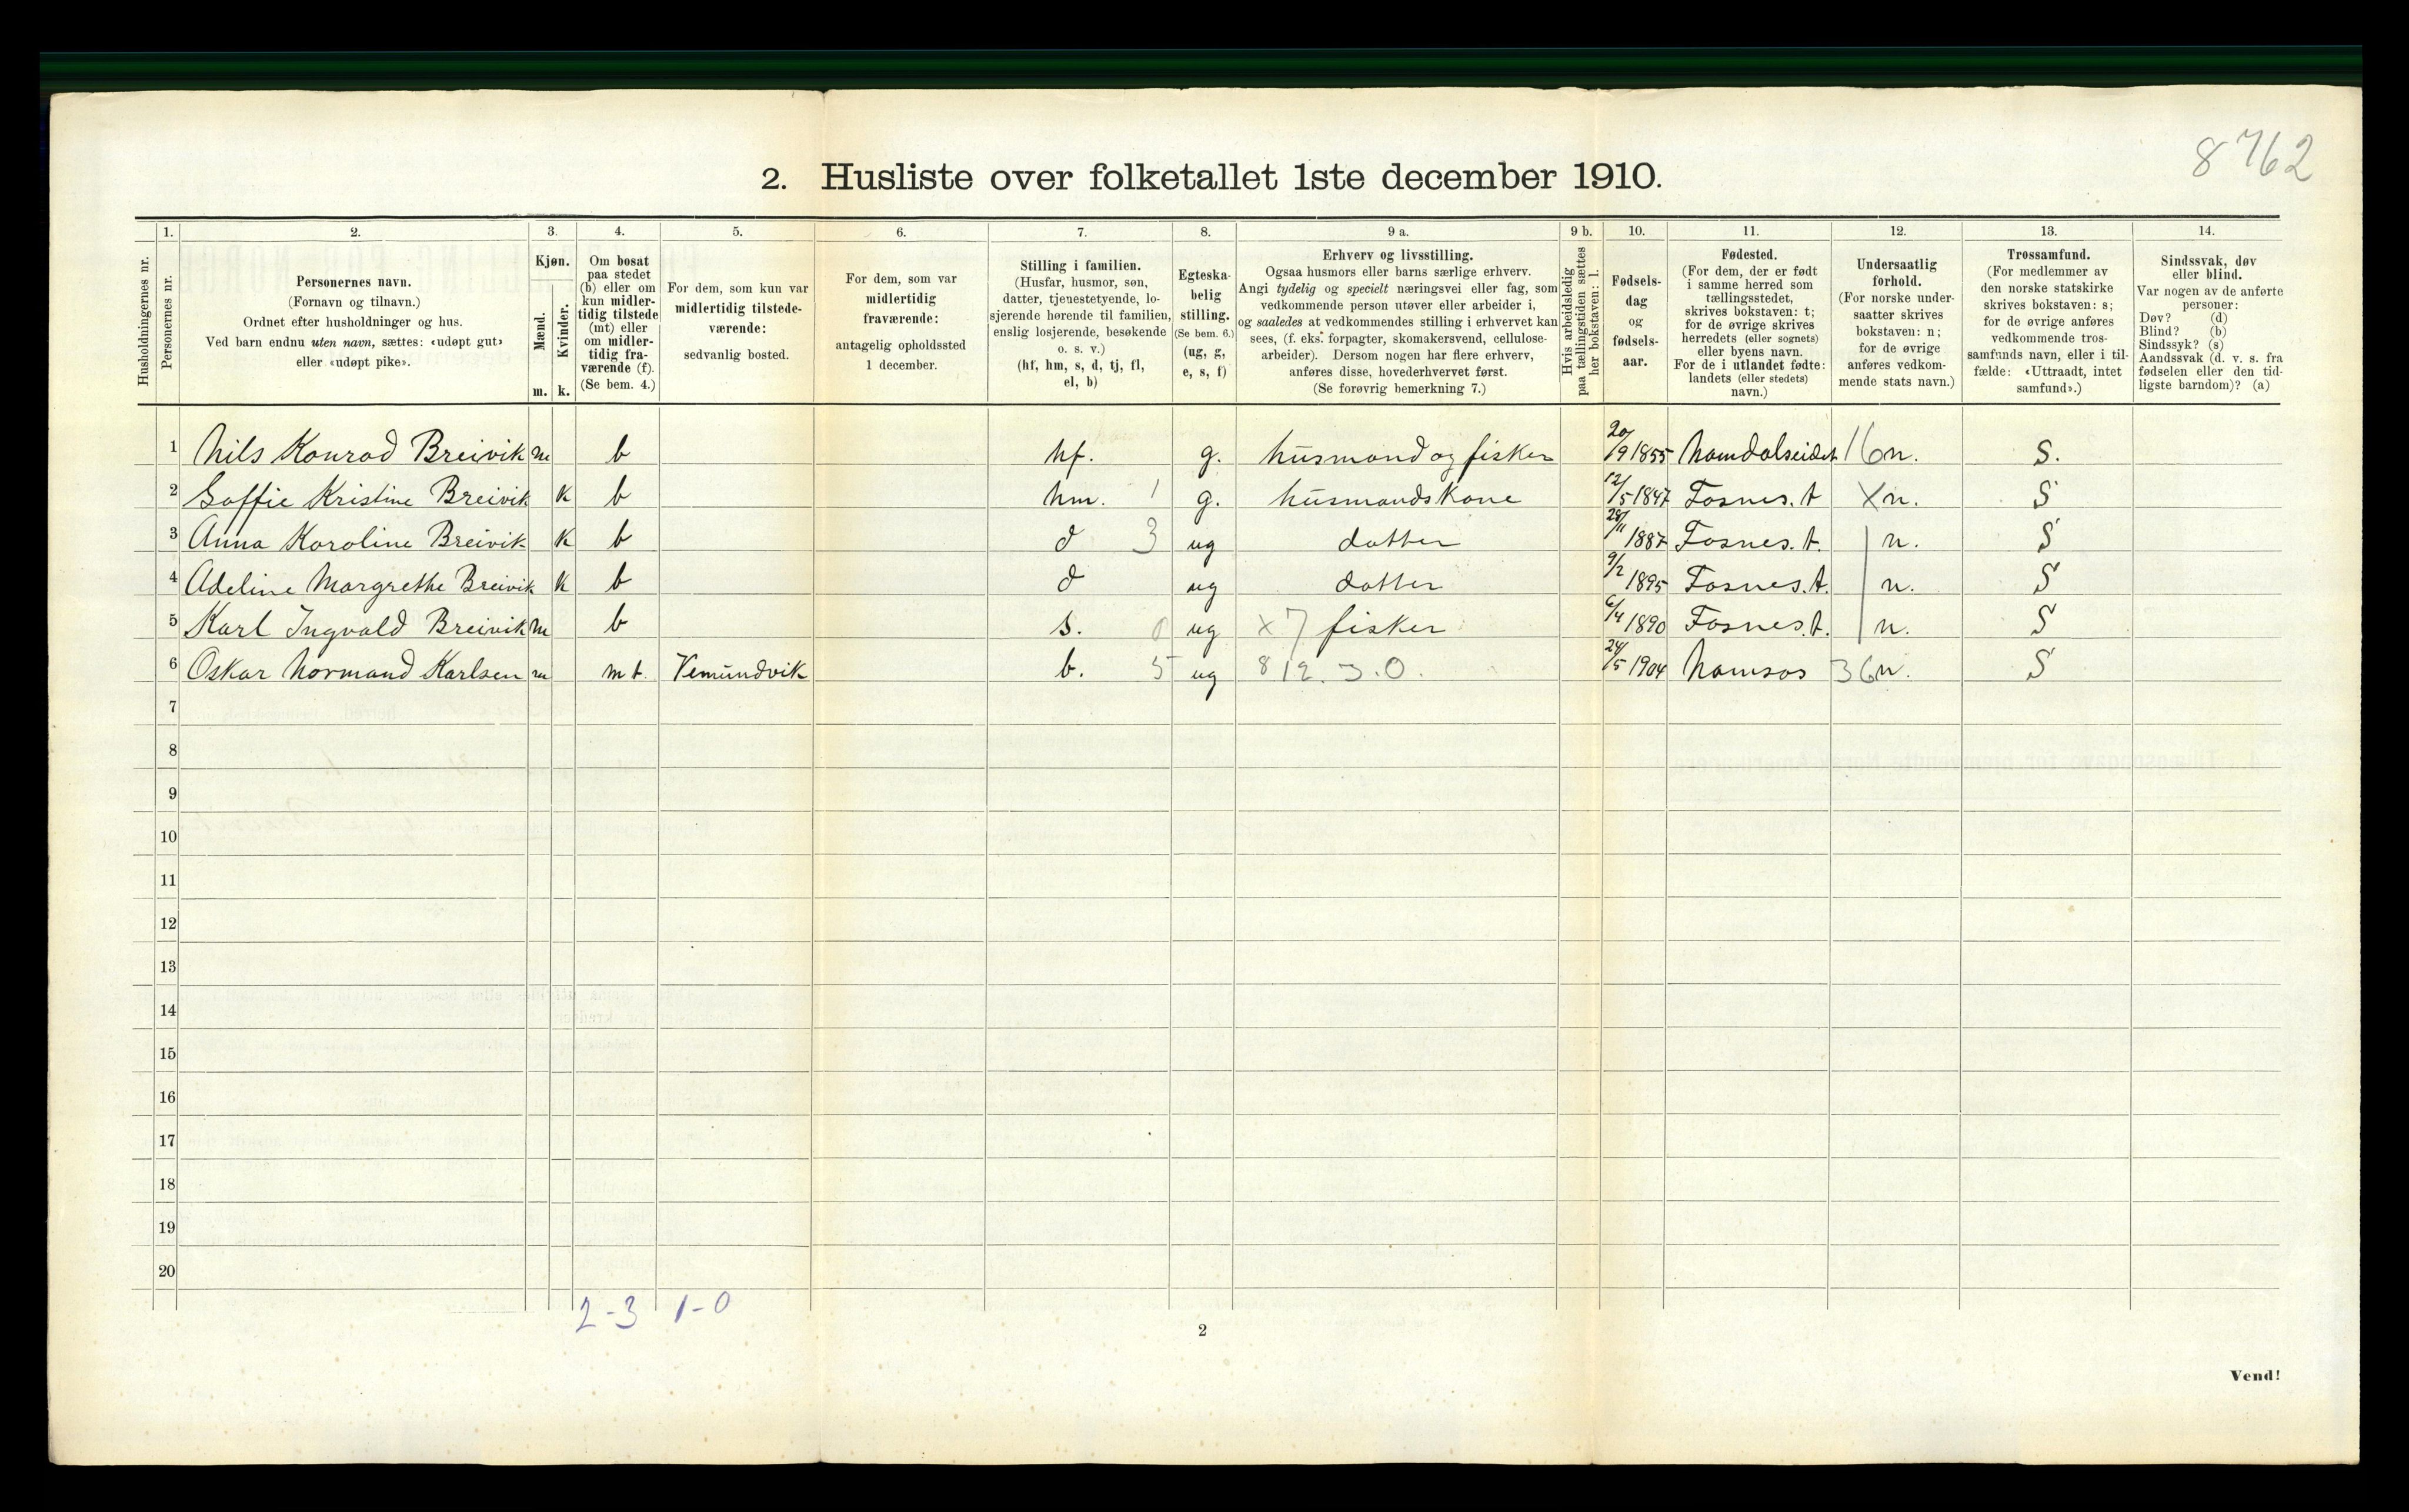 8762
2. Husliste over folketallet 1ste december 1910.
Husholdningernes nr.
1.
Personernes nr.
2.
Personernes navn.
(Fornavn og tilnavn.)
Ordnet efter husholdninger og hus.
Ved barn endnu uten navn, sættes: «udøpt gut»
eller «udøpt pike».
3.
Kjøn.
Mænd.
m.
Kvinder.
k.
4.
Om bosat
paa stedet
(b) eller om
kun midler-
tidig tilstede
(mt) eller
om midler-
tidig fra-
værende (f).
(Se bem. 4.)
5.
For dem, som kun var
midlertidig tilstede-
værende:
sedvanlig bosted.
6.
For dem, som var
midlertidig
fraværende:
antagelig opholdssted
1 december.
7.
Stilling i familien.
(Husfar, husmor, søn,
datter, tjenestetyende, lo-
sjerende hørende til familien,
enslig losjerende, besøkende
o. s. v.)
(hf, hm, s, d, tj, fl,
el, b)
8.
Egteska-
belig
stilling.
(Se bem. 6.)
(ug, g,
e, s, f)
9 a.
Erhverv og livsstilling.
Ogsaa husmors eller barns særlige erhverv.
Angi tydelig og specielt næringsvei eller fag, som
vedkommende person utøver eller arbeider i,
og saaledes at vedkommendes stilling i erhvervet kan
sees, (f. eks. forpagter, skomakersvend, cellulose-
arbeider). Dersom nogen har flere erhverv,
anføres disse, hovederhvervet først.
(Se forøvrig bemerkning 7.)
9 b.
Hvis arbeidsledig
paa tællingstiden sættes
her bokstaven: l.
10.
Fødsels-
dag
og
fødsels-
aar.
11.
Fødested.
(For dem, der er født
i samme herred som
tællingsstedet,
skrives bokstaven: t;
for de øvrige skrives
herredets (eller sognets)
eller byens navn.
For de i utlandet fødte:
landets (eller stedets)
navn.)
12.
Undersaatlig
forhold.
(For norske under-
saatter skrives
bokstaven: n;
for de øvrige
anføres vedkom-
mende stats navn.)
13.
Trossamfund.
(For medlemmer av
den norske statskirke
skrives bokstaven: s;
for de øvrige anføres
vedkommende tros-
samfunds navn, eller i til-
fælde: «Uttraadt, intet
samfund».)
14.
Sindssvak, døv
eller blind.
Var nogen av de anførte
personer:
Døv? (d)
Blind? (b)
Sindssyk? (s)
Aandssvak (d. v. s. fra
fødselen eller den tid-
ligste barndom)? (a)
1 Nils Konrad Breivik m b hf. g. husmand og fisker 20/9 1855 Namdalseidet 16 n. S.
2 Goffie Kristine Breivik k b hm. 1 g. husmandskone 12/5 1847 Fosnes. t X n. S
3 Anna Karoline Breivik k b d 3 ug datter 28/11 1887 Fosnes. t. n. S
4 Adeline Margrethe Breivik k b d ug datter 9/2 1895 Fosnes. t. n. S
5 Karl Ingvald Breivik m b s. 0 ug x 7 fisker 6/4 1890 Fosnes. t. n. S
6 Oskar Normand Karlsen m mt. Vemundvik b. 5 ug 812. 3.0. 24/5 1904 Namsos 36 n. S
7
8
9
10
11
12
13
14
15
16
17
18
19
20
2-3 1-0
2
Vend!